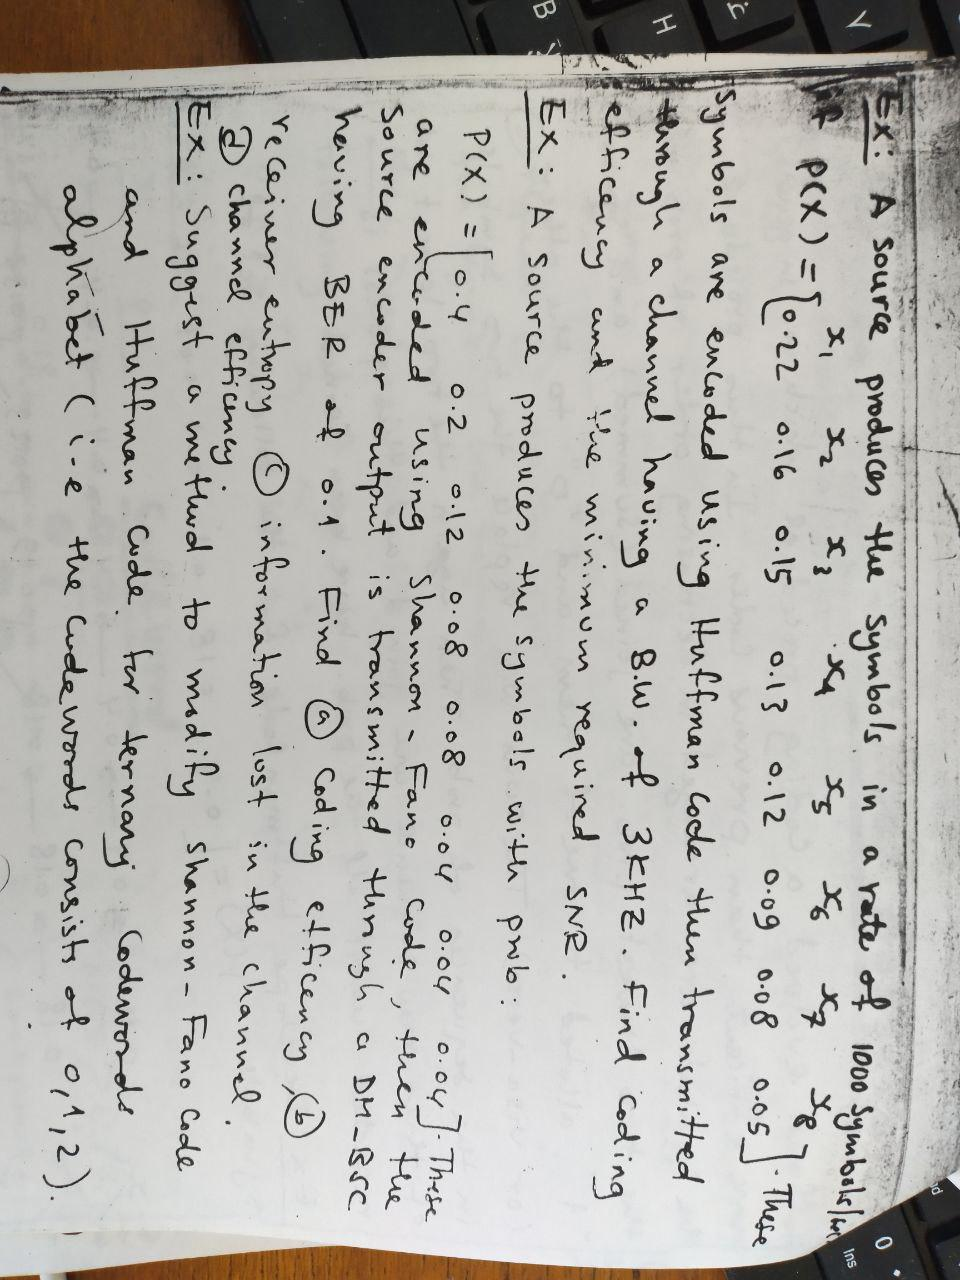 Ex: A source produces the symbols in a rate of 1000 symbols/sec
if x1 x2 x3 x4 x5 x6 x7 x8
P(X) = [0.22 0.16 0.15 0.13 0.12 0.09 0.08 0.05]. These
symbols are encoded using Huffman code then transmitted
through a channel having a B.W. of 3KHZ. Find coding
efficency and the minimum required SNR.
Ex: A source produces the symbols with prob:
P(X) = [0.4 0.2 0.12 0.08 0.08 0.04 0.04 0.04]. These
are encoded using Shannon-Fano code, then the
source encoder output is transmitted through a DM-BSC
having BER of 0.1. Find ⓐ Coding efficency, ⓑ
receiver entropy ⓒ information lost in the channel.
ⓓ channel efficency.
Ex: Suggest a method to modify Shannon-Fano code
and Huffman code for ternary Codewords
alphabet (i-e the codewords consists of 0,1,2).
V
H
B
Ins
0